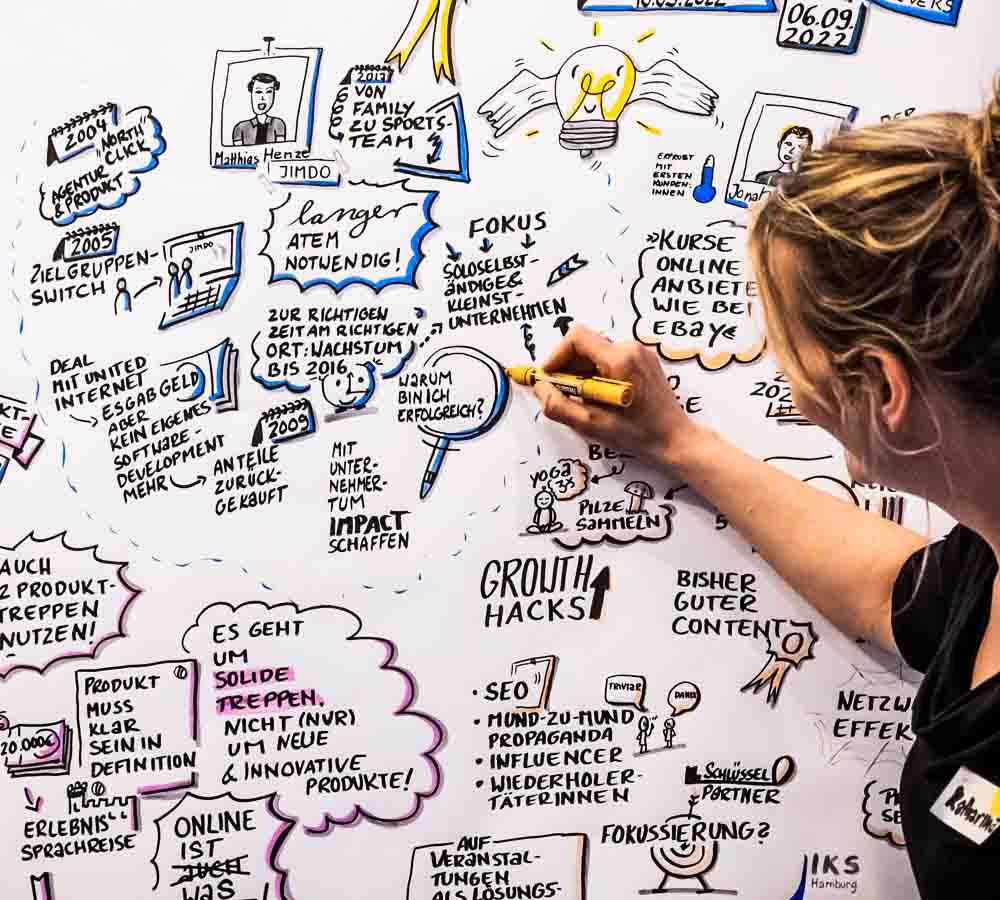 06.09.
2022
2017
VON
FAMILY
ZU SPORTS-
TEAM
2004
"NORTH"
CLICK
AGENTUR
& PRODUKT
Matthias Henze
JIMDO
ERPROBT
MIT
ERSTEN
KUNDEN:
INNEN
2005
ZIELGRUPPEN-
SWITCH
JIMDO
langer
ATEM
NOTWENDIG!
FOKUS
SOLOSELBST-
ÄNDIGE &
KLEINST-
UNTERNEHMEN
»KURSE
ONLINE
ANBIETE
WIE BEI
EBAY«
ZUR RICHTIGEN
ZEIT AM RICHTIGEN
ORT: WACHSTUM
BIS 2016
DEAL
MIT UNITED
INTERNET
ES GAB GELD
ABER
KEIN EIGENES
SOFTWARE-
DEVELOPMENT
MEHR
2009
ANTEILE
ZURÜCK-
GEKAUFT
WARUM
BIN ICH
ERFOLGREICH?
MIT
UNTER-
NEHMER-
TUM
IMPACT
SCHAFFEN
YOGA
PILZE
SAMMELN
AUCH
PRODUKT-
TREPPEN
NUTZEN!
GROWTH
HACKS
BISHER
GUTER
CONTENT
ES GEHT
UM
SOLIDE
TREPPEN.
NICHT (NUR)
UM NEUE
& INNOVATIVE
PRODUKTE!
PRODUKT
MUSS
KLAR
SEIN IN
DEFINITION
20.000€
ERLEBNIS
SPRACHREISE
• SEO
• MUND-ZU-MUND
PROPAGANDA
• INFLUENCER
• WIEDERHOLER-
TÄTERINNEN
TRIVIAR
NETZW
EFFEK
SCHLÜSSEL
PARTNER
FOKUSSIERUNG?
ONLINE
IST
AUCH
WAS
AUF
VERANSTAL-
TUNGEN
ALS LÖSUNGS-
IKS
Hamburg